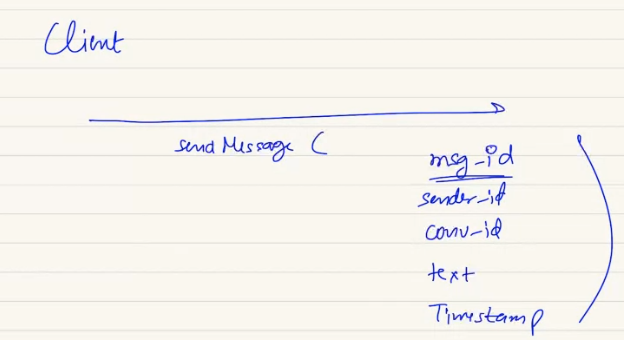 Client
send Message (
msg-id
sender-id
conv-id
text
Timestamp
)